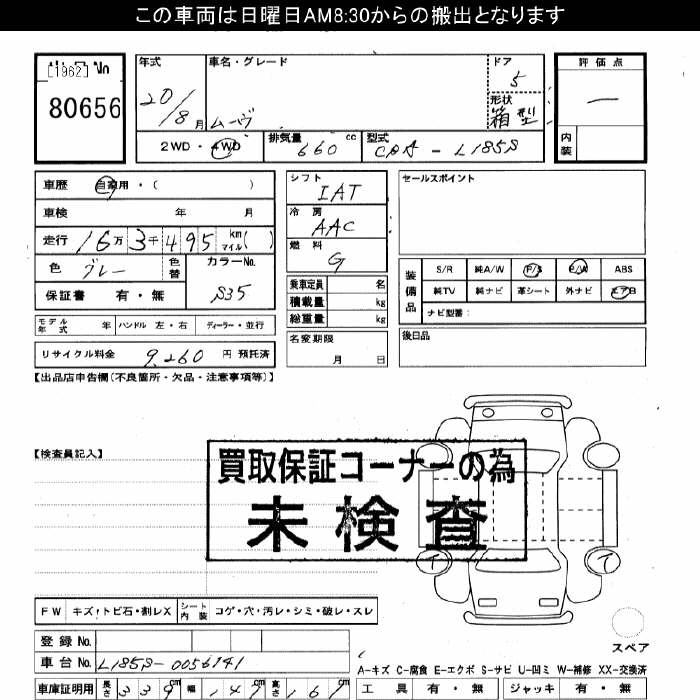 この車両は日曜日AM8:30からの搬出となります
[1962] No
80656
年式
20/8月
車名・グレード
ムーヴ
ドア
5
形状
箱型
評価点
一
内装
2WD・4WD
排気量 660 cc
型式 CBA-L185S
車歴 自家用・( )
車検 年 月
走行 16万3千495 km マイル( )
色 グレー
色替
カラーNo.
S35
保証書 有・無
シフト
IAT
冷房
AAC
燃料
G
乗車定員 名
積載量 kg
総重量 kg
名変期限
月 日
セールスポイント
装備品
S/R 純A/W P/S P/W ABS
純TV 純ナビ 革シート 外ナビ エアB
ナビ型番:
後日品
モデル年式 年 ハンドル 左・右 ディーラー・並行
リサイクル料金 9,260 円 預託済
【出品店申告欄(不良箇所・欠品・注意事項等)】
【検査員記入】
買取保証コーナーの為
未検査
FW キズ・トビ石・割レX シート内装 コゲ・穴・汚レ・シミ・破レ・スレ
登録No.
車台No. L185S-0056141
車庫証明用 長さ 339cm 幅 147cm 高さ 169cm
イ
イ
スペア
A-キズ C-腐食 E-エクボ S-サビ U-凹ミ W-補修 XX-交換済
工具 有・無 ジャッキ 有・無